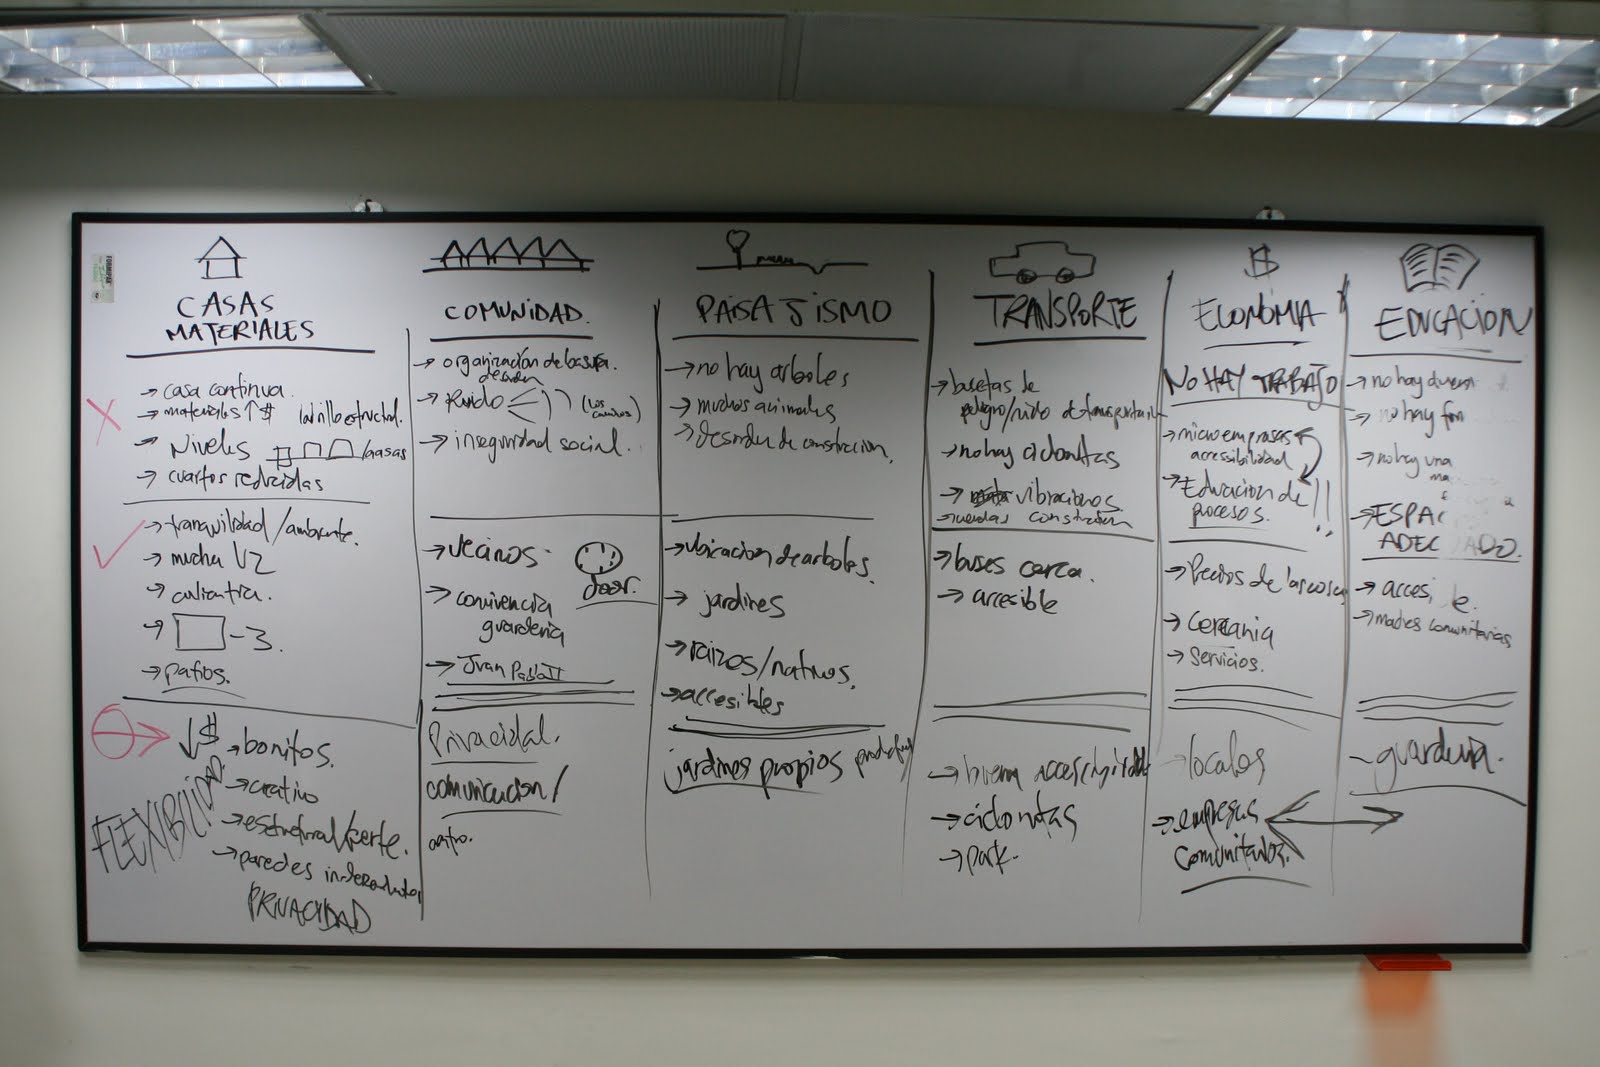 CASAS
MATERIALES
→ casa continua
→ materiales ↑ $ ladrillo estructural.
→ Niveles /casas
→ cuartos reducidas
→ tranquilidad/ambiente.
→ mucha luz
→ calientita.
→ -3.
→ patios.
↓$ → bonitos.
→ creativo
→ estructural/fuerte.
→ paredes independientes
PRIVACIDAD
FLEXIBILIDAD
COMUNIDAD.
→ organización de basura.
desorden
→ Ruido (los caminos)
→ inseguridad social.
→ vecinos
door.
→ convivencia
guarderia
→ Juan Pablo II
Privacidad.
comunicacion/
PAISAJISMO
→ no hay arboles
→ muchos animales
→ desorden de construccion.
→ ubicacion de arboles.
→ jardines
→ raizes/nativos.
→ accesibles
jardines propios
TRANSPORTE
→ busetas de
peligro/ruido de transporte
→ no hay ciclorutas
→ vibraciones.
construccion
→ buses cerca.
→ accesible
→ buena accesibilidad
→ ciclorutas
→ park.
$
ECONOMIA
NO HAY TRABAJO
→ micro empresas
accessibilidad
→ Educacion de
procesos. !!
→ Precios de las cosas
→ Cercania
→ Servicios.
→ locales
→ empresas
comunitarios.
EDUCACION
→ no hay
→ no hay
→ no hay una
→ ESPAC
ADEC ADO.
→ accesi le.
→ madres comunitarias
- guarderia.